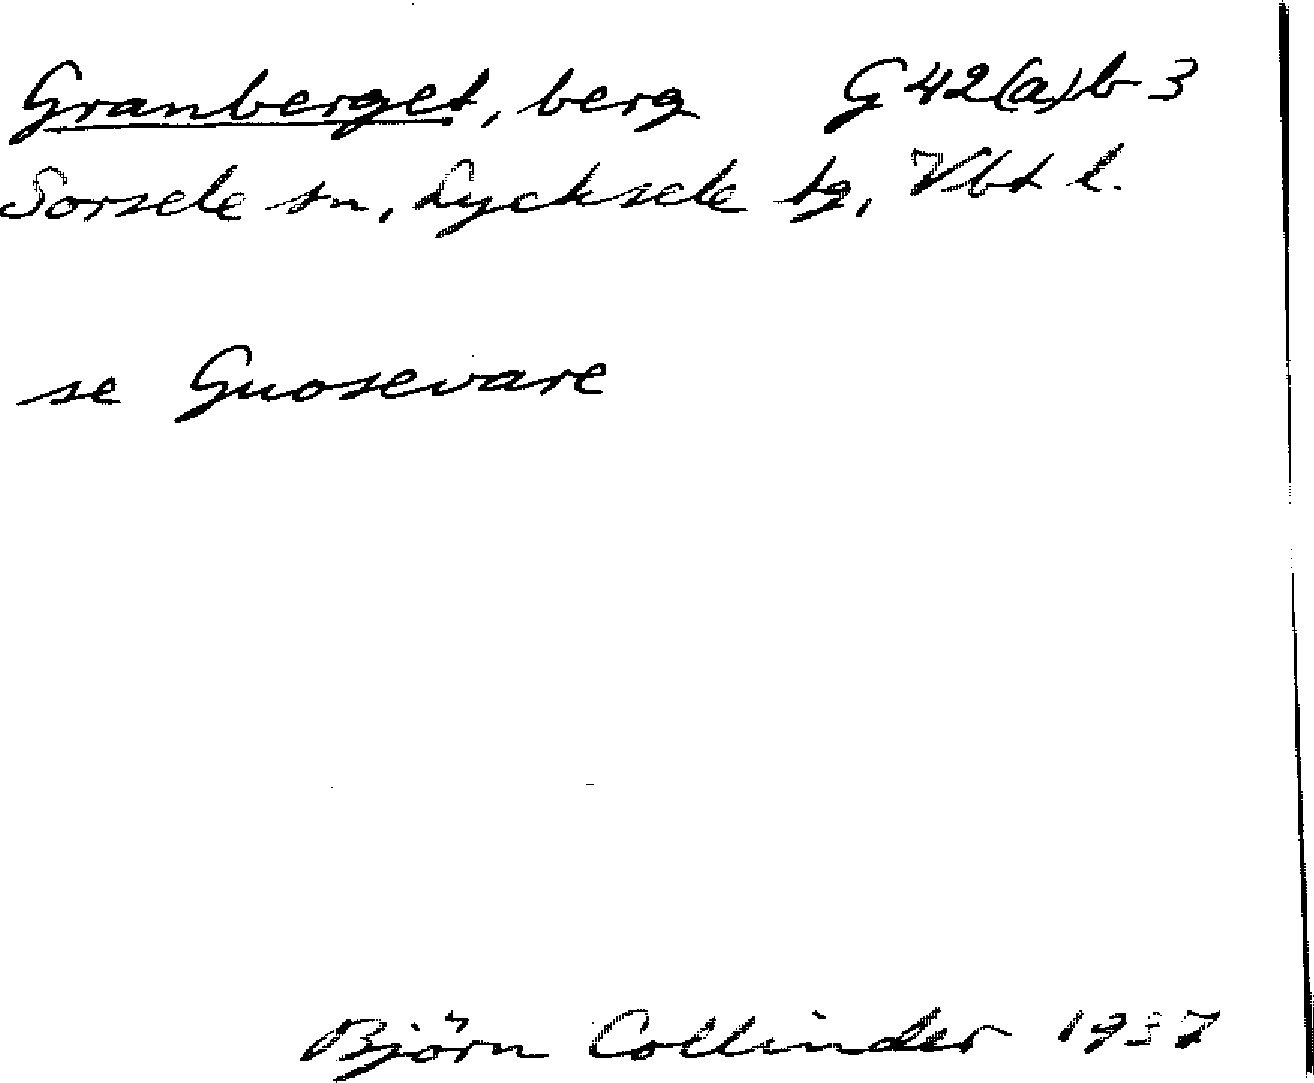 Granberget, berg G 42(a)b 3
Sorsele sn, Lycksele tg, Vbt l.
se Guosevare
Björn Collinder 1937